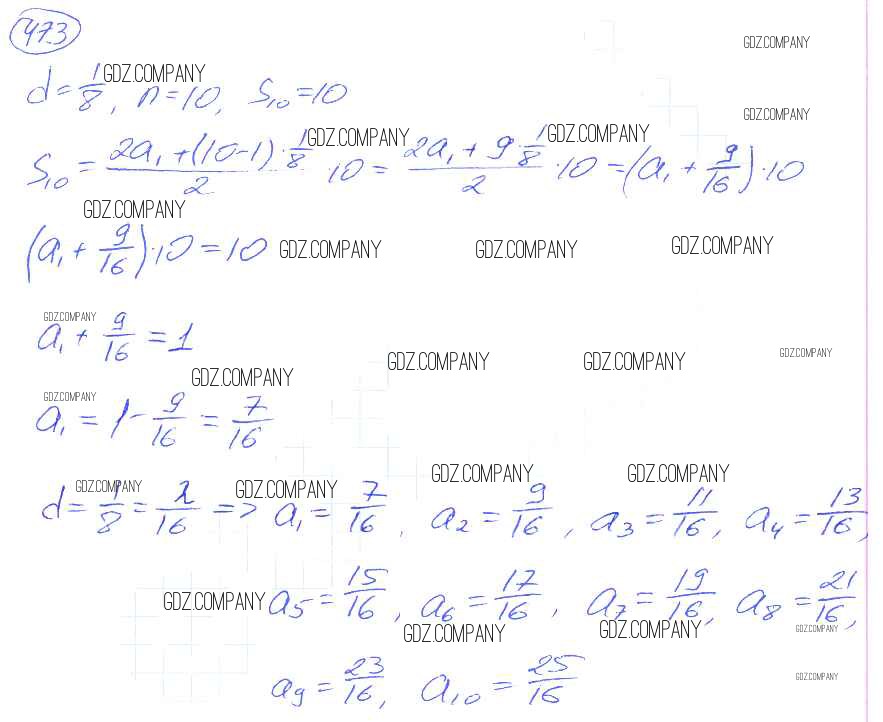 473
GDZ.COMPANY
d = 1/8, n = 10, S₁₀ = 10 GDZ.COMPANY
GDZ.COMPANY
S₁₀ = (2a₁ + (10-1) · 1/8)/2 · 10 = (2a₁ + 9 · 1/8)/2 · 10 = (a₁ + 9/16) · 10 GDZ.COMPANY GDZ.COMPANY
GDZ.COMPANY
(a₁ + 9/16) · 10 = 10 GDZ.COMPANY GDZ.COMPANY GDZ.COMPANY
GDZ.COMPANY
a₁ + 9/16 = 1
GDZ.COMPANY GDZ.COMPANY GDZ.COMPANY
GDZ.COMPANY
GDZ.COMPANY
a₁ = 1 - 9/16 = 7/16
GDZ.COMPANY GDZ.COMPANY
GDZ.COMPANY GDZ.COMPANY
d = 1/8 = 2/16 => a₁ = 7/16, a₂ = 9/16, a₃ = 11/16, a₄ = 13/16,
GDZ.COMPANY a₅ = 15/16, a₆ = 17/16, a₇ = 19/16, a₈ = 21/16,
GDZ.COMPANY GDZ.COMPANY GDZ.COMPANY
a₉ = 23/16, a₁₀ = 25/16 GDZ.COMPANY